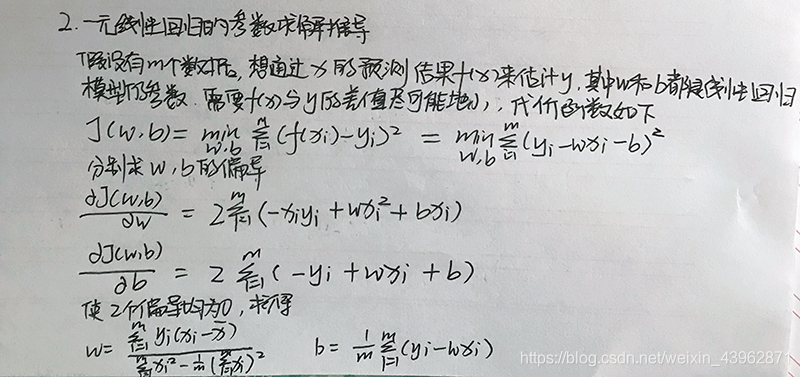 2. 一元线性回归的参数求解推导
假设有m个数据,想通过x的预测结果f(x)来估计y,其中w和b都是线性回归
模型的参数.需要f(x)与y的差值尽可能地小,代价函数如下
J(w,b) = min_{w,b} Σ_{i=1}^{m} (f(xi)-yi)² = min_{w,b} Σ_{i=1}^{m} (yi-wxi-b)²
分别求w,b的偏导
∂J(w,b)/∂w = 2 Σ_{i=1}^{m} (-xiyi+wxi²+bxi)
∂J(w,b)/∂b = 2 Σ_{i=1}^{m} (-yi+wxi+b)
使2个偏导均为0,求得
w = Σ_{i=1}^{m} yi(xi-x̄) / (Σ_{i=1}^{m} xi² - 1/m (Σ_{i=1}^{m} xi)²)   b = 1/m Σ_{i=1}^{m} (yi-wxi)
https://blog.csdn.net/weixin_43962871